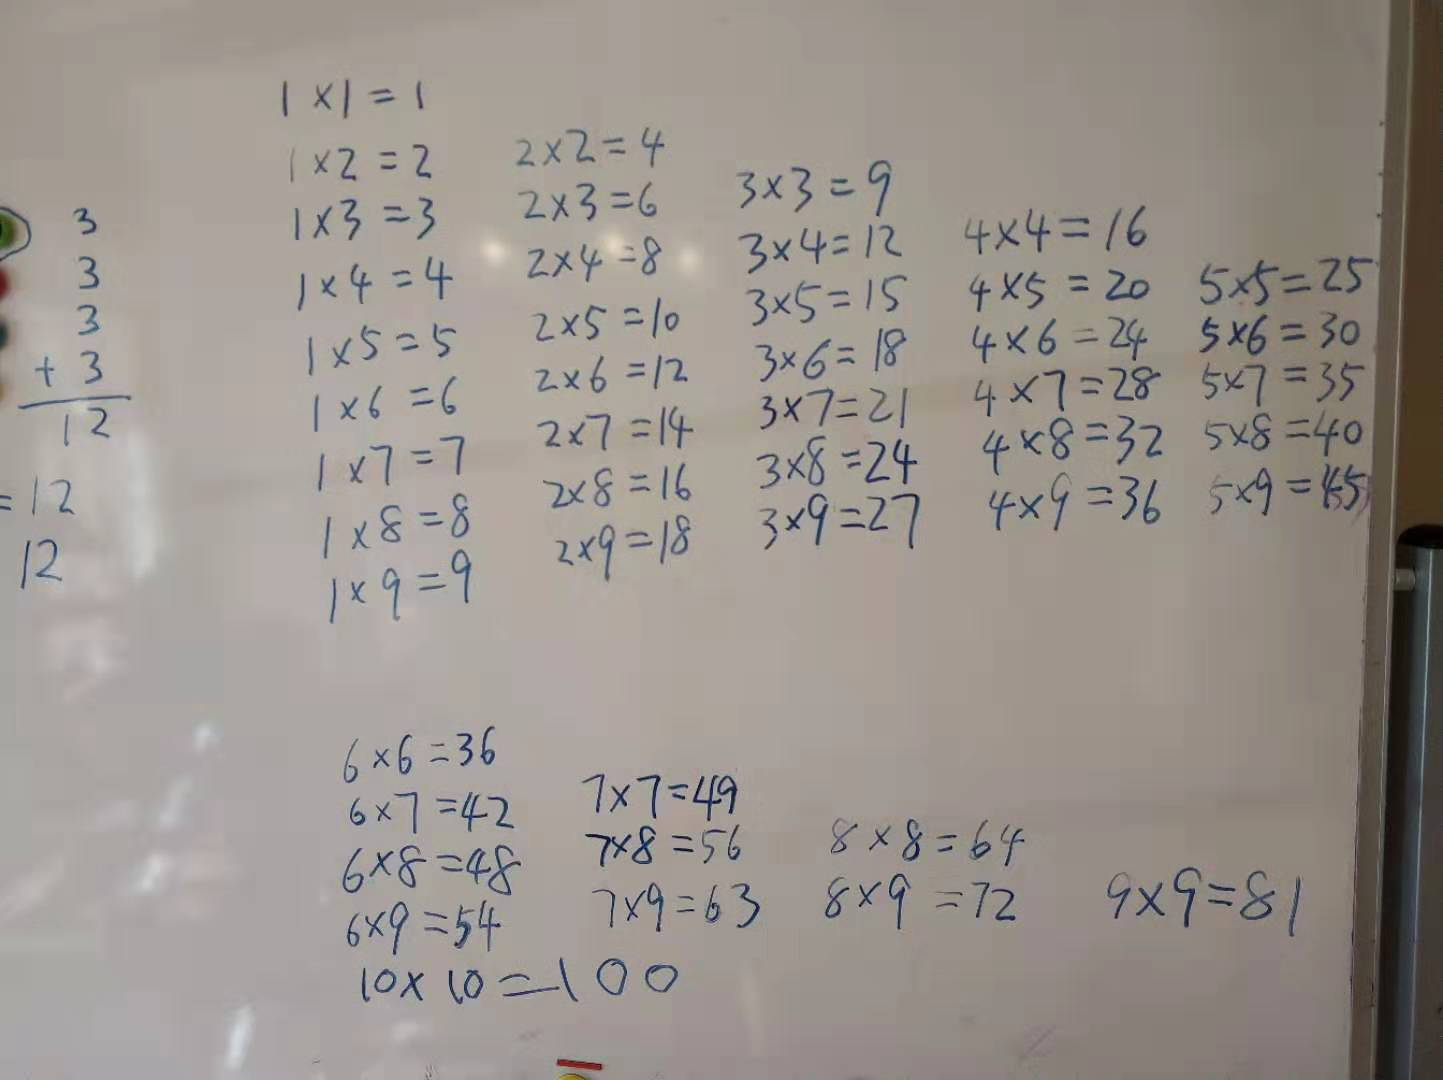 3
3
3
+ 3
12
=12
12
1×1=1
1×2=2
1×3=3
1×4=4
1×5=5
1×6=6
1×7=7
1×8=8
1×9=9
2×2=4
2×3=6
2×4=8
2×5=10
2×6=12
2×7=14
2×8=16
2×9=18
3×3=9
3×4=12
3×5=15
3×6=18
3×7=21
3×8=24
3×9=27
4×4=16
4×5=20
4×6=24
4×7=28
4×8=32
4×9=36
5×5=25
5×6=30
5×7=35
5×8=40
5×9=45
6×6=36
6×7=42
6×8=48
6×9=54
7×7=49
7×8=56
7×9=63
8×8=64
8×9=72
9×9=81
10×10=100